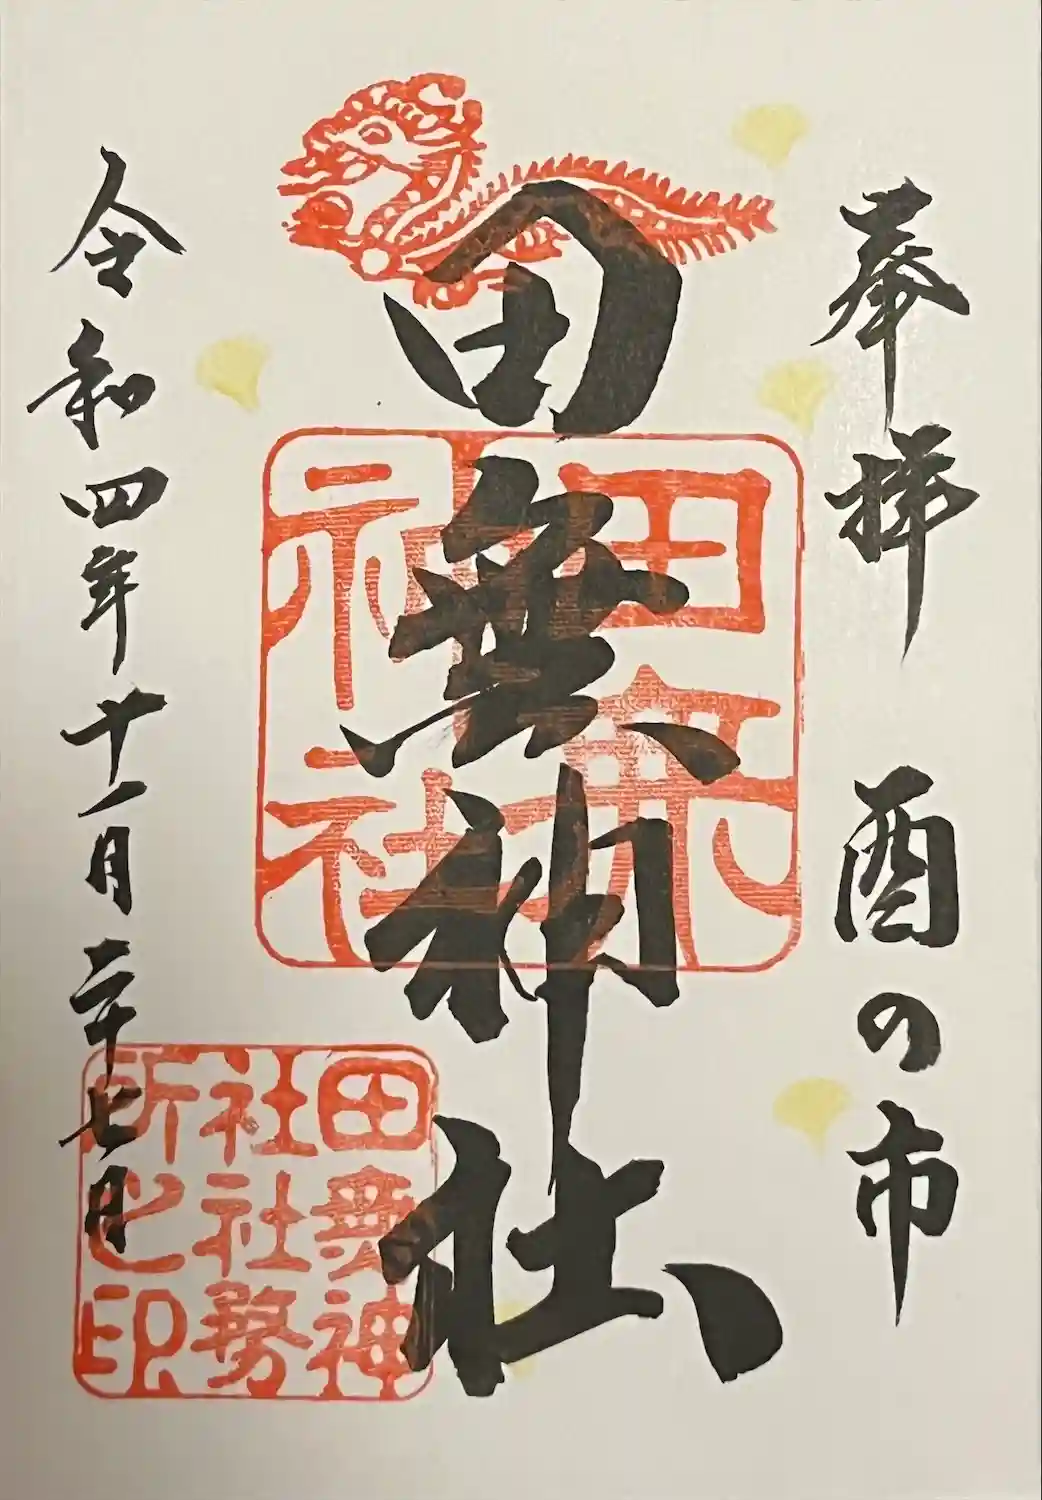 奉拝 酉の市
田無神社
令和四年十一月二十七日
田無神社
田無神
社社務
所之印